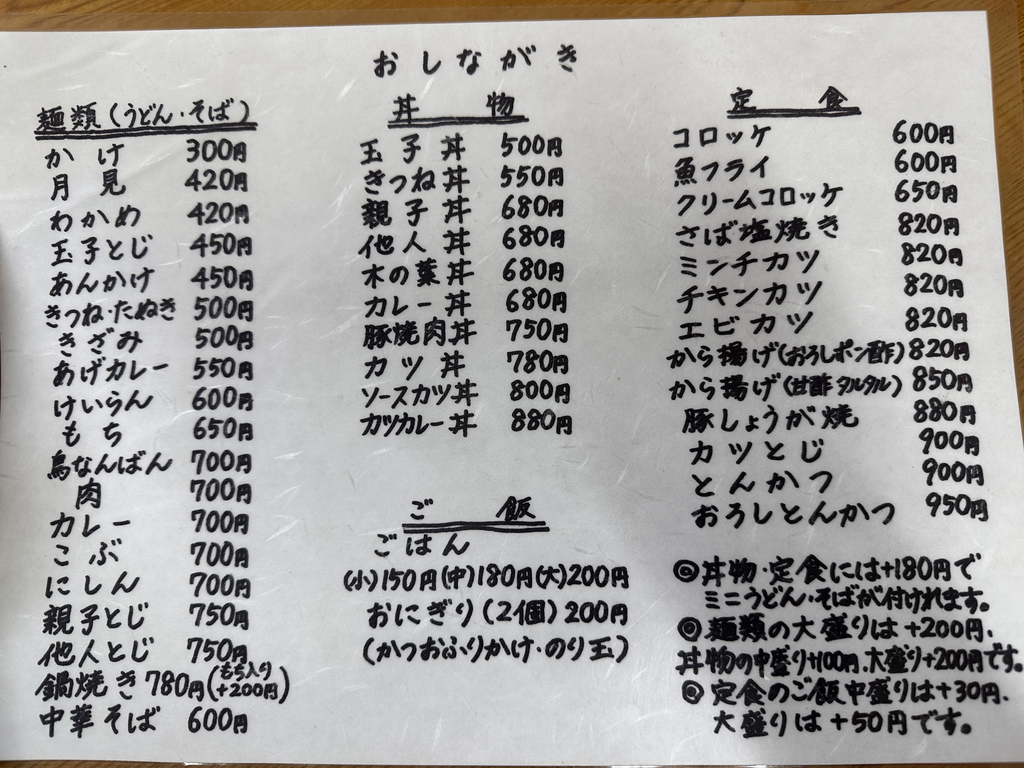 おしながき
麺類(うどん・そば)
かけ 300円
月見 420円
わかめ 420円
玉子とじ 450円
あんかけ 450円
きつね・たぬき 500円
きざみ 500円
あげカレー 550円
けいらん 600円
もち 650円
鳥なんばん 700円
肉 700円
カレー 700円
こぶ 700円
にしん 700円
親子とじ 750円
他人とじ 750円
鍋焼き 780円(もち入り+200円)
中華そば 600円
丼物
玉子丼 500円
きつね丼 550円
親子丼 680円
他人丼 680円
木の葉丼 680円
カレー丼 680円
豚焼肉丼 750円
カツ丼 780円
ソースカツ丼 800円
カツカレー丼 880円
ご飯
ごはん
(小)150円(中)180円(大)200円
おにぎり(2個)200円
(かつおふりかけ・のり玉)
定食
コロッケ 600円
魚フライ 600円
クリームコロッケ 650円
さば塩焼き 820円
ミンチカツ 820円
チキンカツ 820円
エビカツ 820円
から揚げ(おろしポン酢)820円
から揚げ(甘酢タルタル)850円
豚しょうが焼 880円
カツとじ 900円
とんかつ 900円
おろしとんかつ 950円
◎丼物・定食には+180円で
ミニうどん・そばが付けれます。
◎麺類の大盛りは+200円.
丼物の中盛り+100円.大盛り+200円です。
◎定食のご飯中盛りは+30円.
大盛りは+50円です。